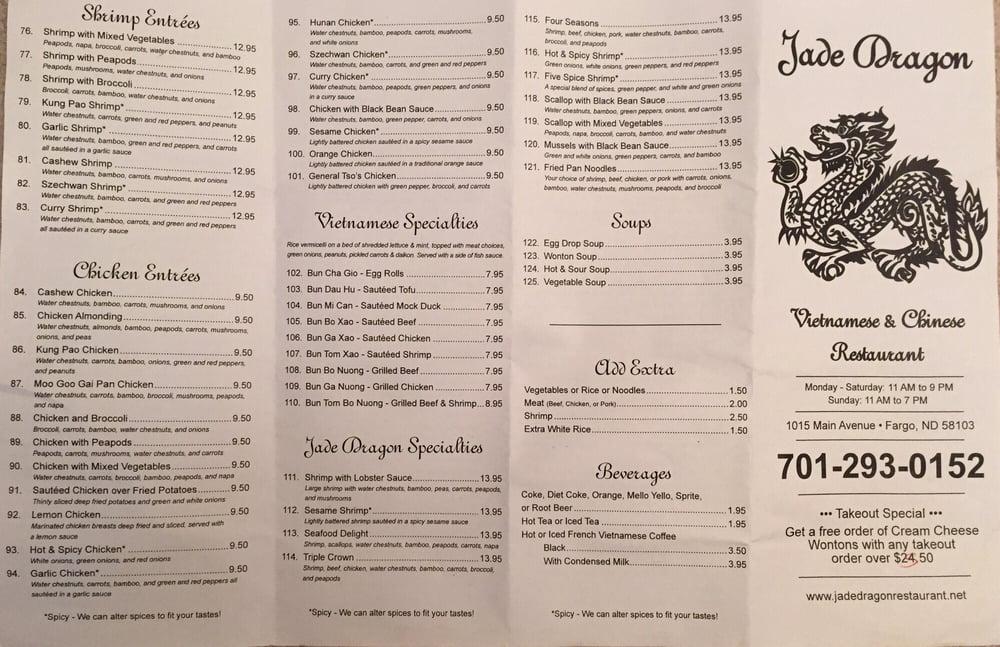 Shrimp Entrées
76. Shrimp with Mixed Vegetables ........ 12.95
Peapods, napa, broccoli, carrots, water chestnuts, and bamboo
77. Shrimp with Peapods ........ 12.95
Peapods, mushrooms, water chestnuts, and onions
78. Shrimp with Broccoli ........ 12.95
Broccoli, carrots, bamboo, water chestnuts, and onions
79. Kung Pao Shrimp* ........ 12.95
Water chestnuts, carrots, green and red peppers, and peanuts
80. Garlic Shrimp* ........ 12.95
Water chestnuts, bamboo, green and red peppers, and carrots
all sautéed in a garlic sauce
81. Cashew Shrimp ........ 12.95
Water chestnuts, bamboo, carrots, mushrooms, and onions
82. Szechwan Shrimp* ........ 12.95
Water chestnuts, bamboo, carrots, and green and red peppers
83. Curry Shrimp* ........ 12.95
Water chestnuts, bamboo, carrots, and green and red peppers
all sautéed in a curry sauce
Chicken Entrées
84. Cashew Chicken ........ 9.50
Water chestnuts, bamboo, carrots, mushrooms, and onions
85. Chicken Almonding ........ 9.50
Water chestnuts, almonds, bamboo, peapods, carrots, mushrooms,
onions, and peas
86. Kung Pao Chicken ........ 9.50
Water chestnuts, carrots, bamboo, onions, green and red peppers,
and peanuts
87. Moo Goo Gai Pan Chicken ........ 9.50
Water chestnuts, carrots, bamboo, broccoli, mushrooms, peapods,
and napa
88. Chicken and Broccoli ........ 9.50
Broccoli, carrots, bamboo, water chestnuts, and onions
89. Chicken with Peapods ........ 9.50
Peapods, carrots, mushrooms, water chestnuts, and carrots
90. Chicken with Mixed Vegetables ........ 9.50
Water chestnuts, carrots, broccoli, bamboo, peapods, and napa
91. Sautéed Chicken over Fried Potatoes ........ 9.50
Thinly sliced deep fried potatoes and green and white onions
92. Lemon Chicken ........ 9.50
Marinated chicken breasts deep fried and sliced, served with
a lemon sauce
93. Hot & Spicy Chicken* ........ 9.50
White onions, green onions, and red onions
94. Garlic Chicken* ........ 9.50
Water chestnuts, carrots, bamboo, and green and red peppers all
sautéed in a garlic sauce
*Spicy - We can alter spices to fit your tastes!
95. Hunan Chicken* ........ 9.50
Water chestnuts, bamboo, peapods, carrots, mushrooms,
and white onions
96. Szechwan Chicken* ........ 9.50
Water chestnuts, bamboo, carrots, and green and red peppers
97. Curry Chicken* ........ 9.50
Water chestnuts, bamboo, peapods, green peppers, and onions
in a curry sauce
98. Chicken with Black Bean Sauce ........ 9.50
Water chestnuts, bamboo, green pepper, carrots, and onions
99. Sesame Chicken* ........ 9.50
Lightly battered chicken sautéed in a spicy sesame sauce
100. Orange Chicken ........ 9.50
Lightly battered chicken sautéed in a traditional orange sauce
101. General Tso's Chicken ........ 9.50
Lightly battered chicken with green pepper, broccoli, and carrots
Vietnamese Specialties
Rice vermicelli on a bed of shredded lettuce & mint, topped with meat choices,
green onions, peanuts, pickled carrots & daikon. Served with a side of fish sauce.
102. Bun Cha Gio - Egg Rolls ........ 7.95
103. Bun Dau Hu - Sautéed Tofu ........ 7.95
104. Bun Mi Can - Sautéed Mock Duck ........ 7.95
105. Bun Bo Xao - Sautéed Beef ........ 7.95
106. Bun Ga Xao - Sautéed Chicken ........ 7.95
107. Bun Tom Xao - Sautéed Shrimp ........ 7.95
108. Bun Bo Nuong - Grilled Beef ........ 7.95
109. Bun Ga Nuong - Grilled Chicken ........ 7.95
110. Bun Tom Bo Nuong - Grilled Beef & Shrimp... 8.95
Jade Dragon Specialties
111. Shrimp with Lobster Sauce ........ 13.95
Large shrimp with water chestnuts, bamboo, peas, carrots, peapods,
and mushrooms
112. Sesame Shrimp* ........ 13.95
Lightly battered shrimp sautéed in a spicy sesame sauce
113. Seafood Delight ........ 13.95
Shrimp, scallops, water chestnuts, bamboo, peapods, carrots, napa
114. Triple Crown ........ 13.95
Shrimp, beef, chicken, water chestnuts, bamboo, carrots, broccoli,
and peapods
*Spicy - We can alter spices to fit your tastes!
115. Four Seasons ........ 13.95
Shrimp, beef, chicken, pork, water chestnuts, bamboo, carrots,
broccoli, and peapods
116. Hot & Spicy Shrimp* ........ 13.95
Green onions, white onions, green peppers, and red peppers
117. Five Spice Shrimp* ........ 13.95
A special blend of spices, green pepper, and white and green onions
118. Scallop with Black Bean Sauce ........ 13.95
Water chestnuts, bamboo, green peppers, onions, and carrots
119. Scallop with Mixed Vegetables ........ 13.95
Peapods, napa, broccoli, carrots, bamboo, and water chestnuts
120. Mussels with Black Bean Sauce ........ 13.95
Green and white onions, green peppers, carrots, and bamboo
121. Fried Pan Noodles ........ 13.95
Your choice of shrimp, beef, chicken, or pork with carrots, onions,
bamboo, water chestnuts, mushrooms, peapods, and broccoli
Soups
122. Egg Drop Soup ........ 3.95
123. Wonton Soup ........ 3.95
124. Hot & Sour Soup ........ 3.95
125. Vegetable Soup ........ 3.95
Add Extra
Vegetables or Rice or Noodles ........ 1.50
Meat (Beef, Chicken, or Pork) ........ 2.00
Shrimp ........ 2.50
Extra White Rice ........ 1.50
Beverages
Coke, Diet Coke, Orange, Mello Yello, Sprite,
or Root Beer ........ 1.95
Hot Tea or Iced Tea ........ 1.95
Hot or Iced French Vietnamese Coffee
Black ........ 3.50
With Condensed Milk ........ 3.95
*Spicy - We can alter spices to fit your tastes!
Jade Dragon
Vietnamese & Chinese
Restaurant
Monday - Saturday: 11 AM to 9 PM
Sunday: 11 AM to 7 PM
1015 Main Avenue • Fargo, ND 58103
701-293-0152
••• Takeout Special •••
Get a free order of Cream Cheese
Wontons with any takeout
order over $24.50
www.jadedragonrestaurant.net